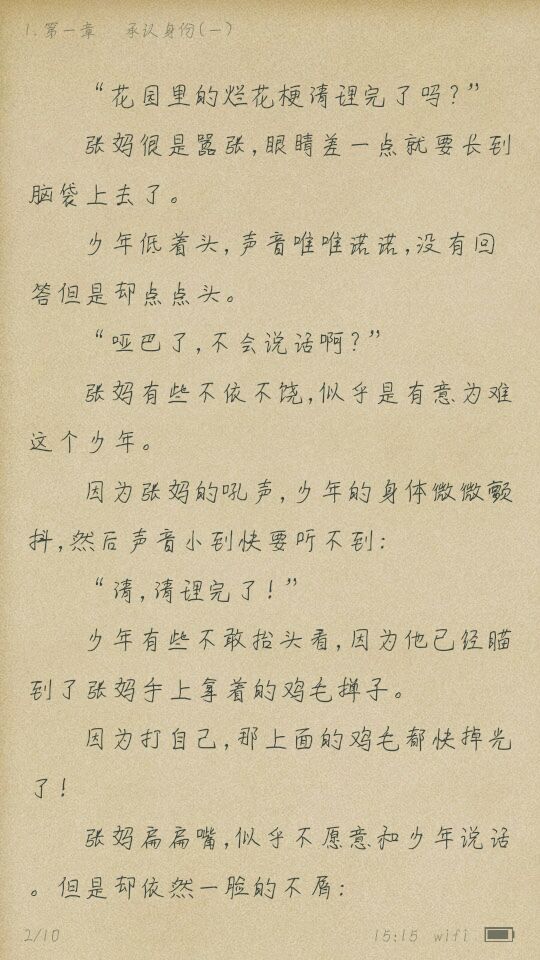 1.第一章 承认身份(一)
“花园里的烂花梗清理完了吗?”
张妈很是嚣张,眼睛差一点就要长到
脑袋上去了。
少年低着头,声音唯唯诺诺,没有回
答但是却点点头。
“哑巴了,不会说话啊?”
张妈有些不依不饶,似乎是有意为难
这个少年。
因为张妈的吼声,少年的身体微微颤
抖,然后声音小到快要听不到:
“清,清理完了!”
少年有些不敢抬头看,因为他已经瞄
到了张妈手上拿着的鸡毛掸子。
因为打自己,那上面的鸡毛都快掉光
了!
张妈扁扁嘴,似乎不愿意和少年说话
。但是却依然一脸的不屑:
2/10 15:15 wifi